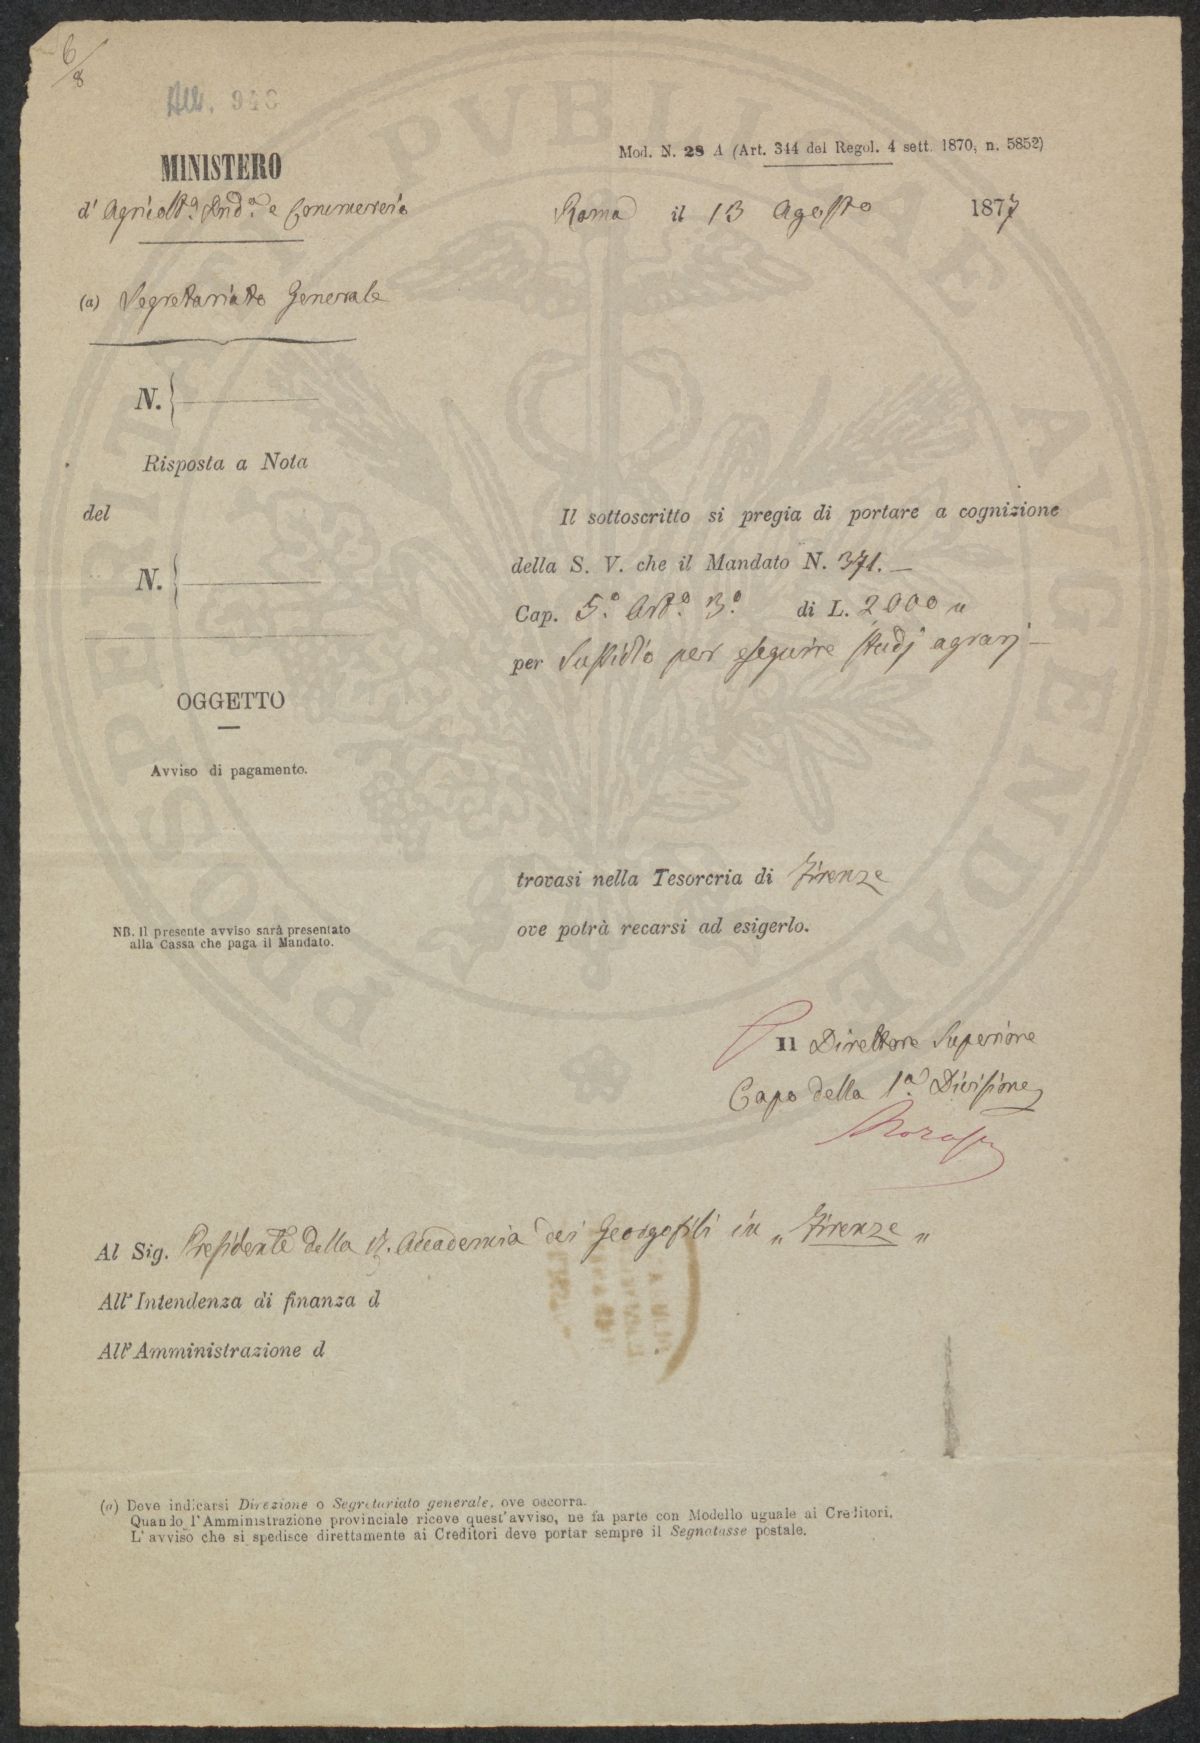 6/8
All. 946
MINISTERO
d' Agricolt.a Ind.a e Commercio
Mod. N. 28 A (Art. 344 del Regol. 4 sett. 1870, n. 5852)
Roma il 13 Agosto 1877
(a) Segretariato Generale
N.
Risposta a Nota
del
N.
OGGETTO
Avviso di pagamento.
NB. Il presente avviso sarà presentato
alla Cassa che paga il Mandato.
Il sottoscritto si pregia di portare a cognizione
della S. V. che il Mandato N. 371. —
Cap. 5.° Art.° 3.° di L. 2000 "
per Sussidio per eseguire studj agrarj —
trovasi nella Tesoreria di Firenze
ove potrà recarsi ad esigerlo.
Il Direttore Superiore
Capo della 1.a Divisione
Al Sig. Presidente della R. Accademia dei Georgofili in „ Firenze „
All' Intendenza di finanza d
All' Amministrazione d
(a) Deve indicarsi Direzione o Segretariato generale, ove occorra.
Quando l'Amministrazione provinciale riceve quest'avviso, ne fa parte con Modello uguale ai Creditori.
L'avviso che si spedisce direttamente ai Creditori deve portar sempre il Segnatasse postale.
PROSPERITATI PVBLICAE AVGENDAE